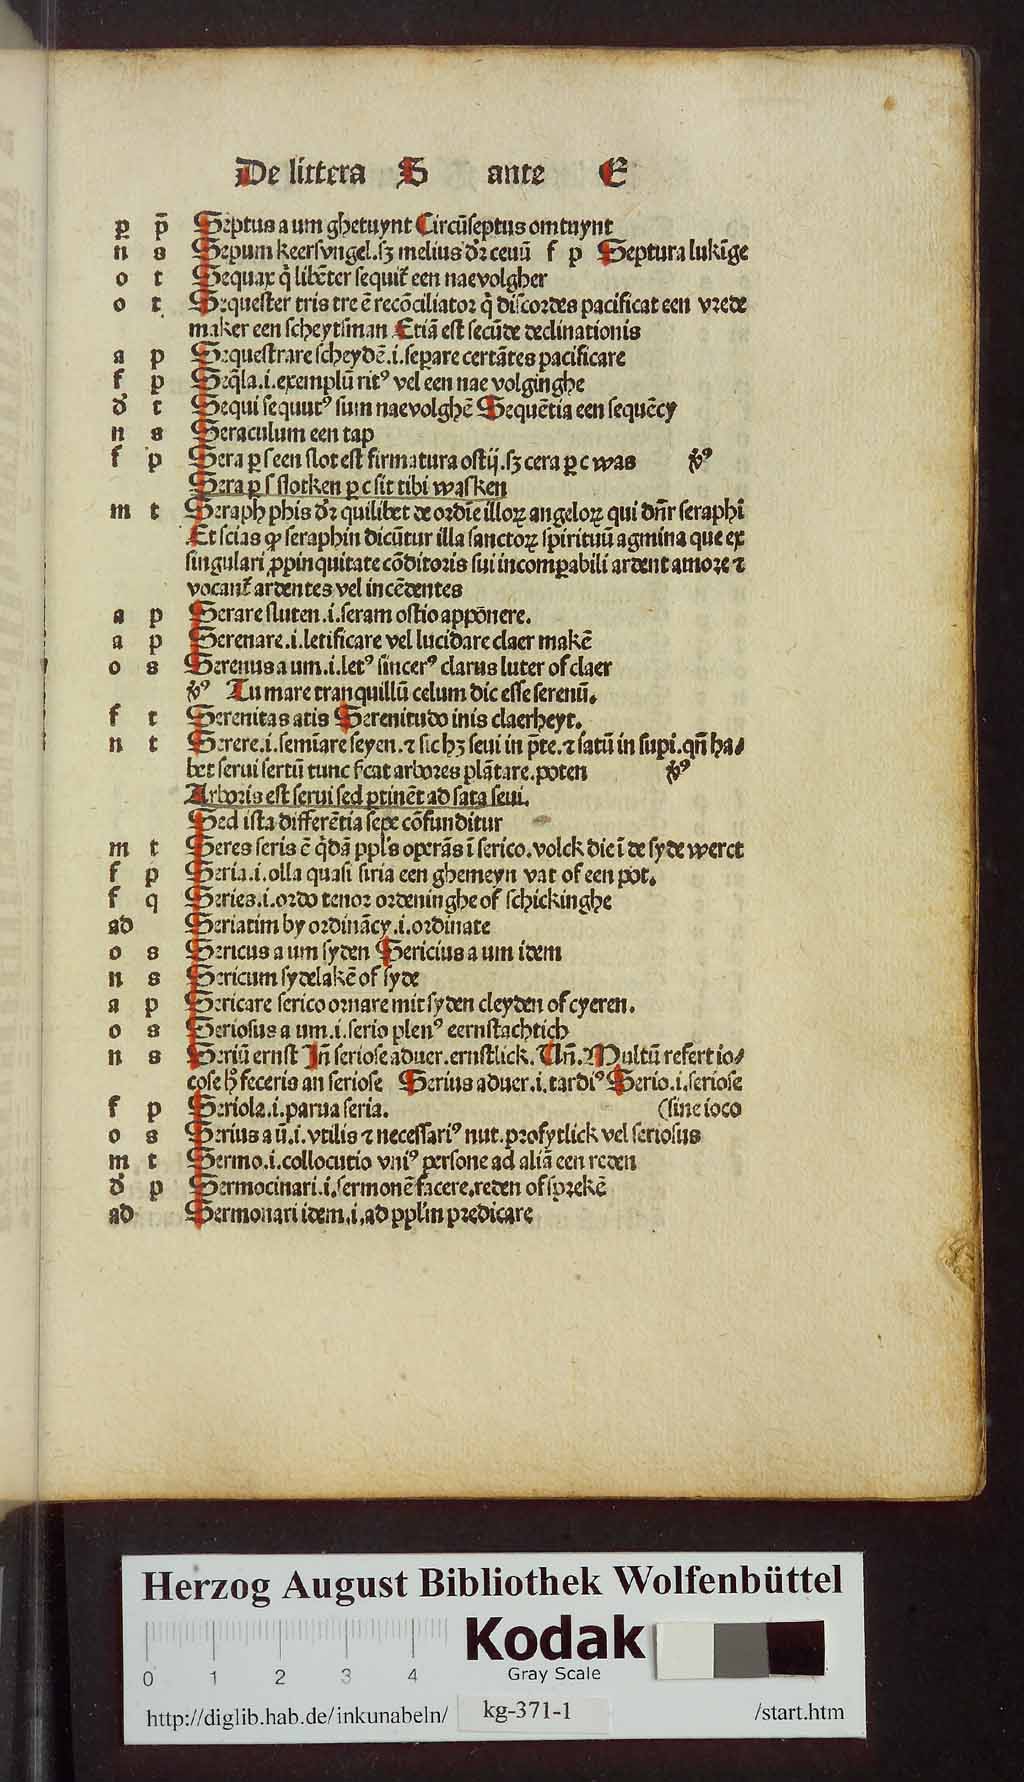 De littera S ante E
ꝑ p̄ Septus a um ghetuynt Circūseptus omtuynt
n s Sepum keersvngel.sꝫ melius dr̄ ceuū f p Septura lukīge
o t Sequax q̇ libēter sequit᷑ een naevolgher
o t Sequester tris tre ē recōciliator q̇ discordes pacificat een vrede
maker een scheytsman Etiā est secūde declinationis
a p Sequestrare scheydē.i.separe certātes pacificare
f p Seq̄la.i.exemplū rit⁹ vel een nae volginghe
d̄ t Sequi sequut⁹ sum naevolghē Sequētia een sequēcy
n s Seraculum een tap
f p Sera ꝑ s een slot est firmatura ostij.sꝫ cera ꝑ c was v̄⁹
Sera ꝑ s slotken ꝑ c sit tibi wasken
m t Seraph phis dr̄ quilibet de ordīe illoꝝ angeloꝝ qui dn̄r seraphī
Et scias ꝙ seraphin dicūtur illa sanctoꝝ spirituū agmina que ex
singulari ꝓpinquitate cōditoris sui incomꝑabili ardent amore ⁊
vocant᷑ ardentes vel incēdentes
a p Serare sluten.i.seram ostio appōnere.
a p Serenare.i.letificare vel lucidare claer makē
o s Serenus a um.i.let⁹ sincer⁹ clarus luter of claer
v̄⁹ Tu mare tranquillū celum dic esse serenū.
f t Serenitas atis Serenitudo inis claerheyt.
n t Serere.i.semīare seyen.⁊ sic hꝫ seui in p̄te.⁊ satū in supi.qn̄ ha⸗
bet serui sertū tunc s̄cat arbores plātare.poten v̄⁹
Arboris est serui sed ꝑtinēt ad sata seui.
Sed ista differētia sepe cōfunditur
m t Seres seris ē q̇dā ppl's operās ī serico.volck die ī de syde werct
f p Seria.i.olla quasi siria een ghemeyn vat of een pot.
f q Series.i.ordo tenor ordeninghe of schickinghe
ad Seriatim by ordinācy.i.ordinate
o s Sericus a um syden Sericius a um idem
n s Sericum sydelakē of syde
a p Sericare serico ornare mit syden cleyden of cyeren.
o s Seriosus a um.i.serio plen⁹ eernstachtich
n s Seriū ernst Jn̄ seriose aduer.ernstlick. Un̄. Multū refert io⸗
cose hꝫ feceris an seriose Serius aduer.i.tardi⁹ Serio.i.seriose
f p Seriola.i.parua seria. (sine ioco
o s Serius a ū.i.vtilis ⁊ necessari⁹ nut.profytlick vel seriosus
m t Sermo.i.collocutio vni⁹ persone ad aliā een reden
d̄ p Sermocinari.i.sermonē facere.reden of sprekē
ad Sermonari idem.i.ad ppl'm predicare
Herzog August Bibliothek Wolfenbüttel
Kodak
Gray Scale
0 1 2 3 4
http://diglib.hab.de/inkunabeln/ kg-371-1 /start.htm